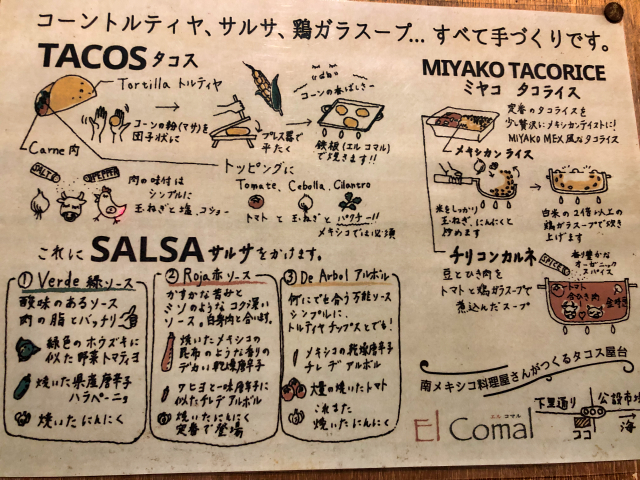 コーントルティヤ、サルサ、鶏ガラスープ... すべて手づくりです。
TACOS タコス
Tortilla トルティヤ
コーンの粉(マサ)を
団子状に
プレス器で
平たく
コーンの香ばしさ〜
鉄板(エル コマル)
で焼きます!!
Carne 肉
SALT
PEPPER
肉の味付は
シンプルに
玉ねぎと塩、コショー
トッピングに
Tomate, Cebolla, Cilantro
トマト と 玉ねぎと パクチー!!
メキシコでは必須
これに SALSA サルサをかけます。
① Verde 緑ソース
酸味のあるソース
肉の脂とバッチリ
緑色のホウズキに
似た野菜トマティヨ
焼いた県産唐辛子
ハラペーニョ
焼いたにんにく
② Roja 赤ソース
かすかな苦みと
ミソのようなコク深い
ソース。白身肉と合います。
焼いたメキシコの
昆布のような香りの
デカい乾燥唐辛子
ワヒヨと一味唐辛子に
似たチレデアルボル
焼いたにんにく
定番で登場
③ De Arbol アルボル
何にでも合う万能ソース
シンプルに、
トルティヤチップスとでも!
メキシコの乾燥唐辛子
チレ デ アルボル
大量の焼いたトマト
これまた
焼いたにんにく
MIYAKO TACORICE
ミヤコ タコライス
定番のタコライスを
少し贅沢にメキシカンテイストに!
MIYAKO MEX.風なタコライス
メキシカンライス
米をしっかり
玉ねぎ、にんにくと
炒めます
白米の2倍以上の
鶏ガラスープで炊き
上げます
チリコンカルネ
豆とひき肉を
トマトと鶏ガラスープで
煮込んだスープ
SPICES
香り豊かな
オーガニック
スパイス
トマト
合びき肉
金時豆
南メキシコ料理屋さんがつくるタコス屋台
El Comal
エル コマル
下里通り
公設市場
ココ
海